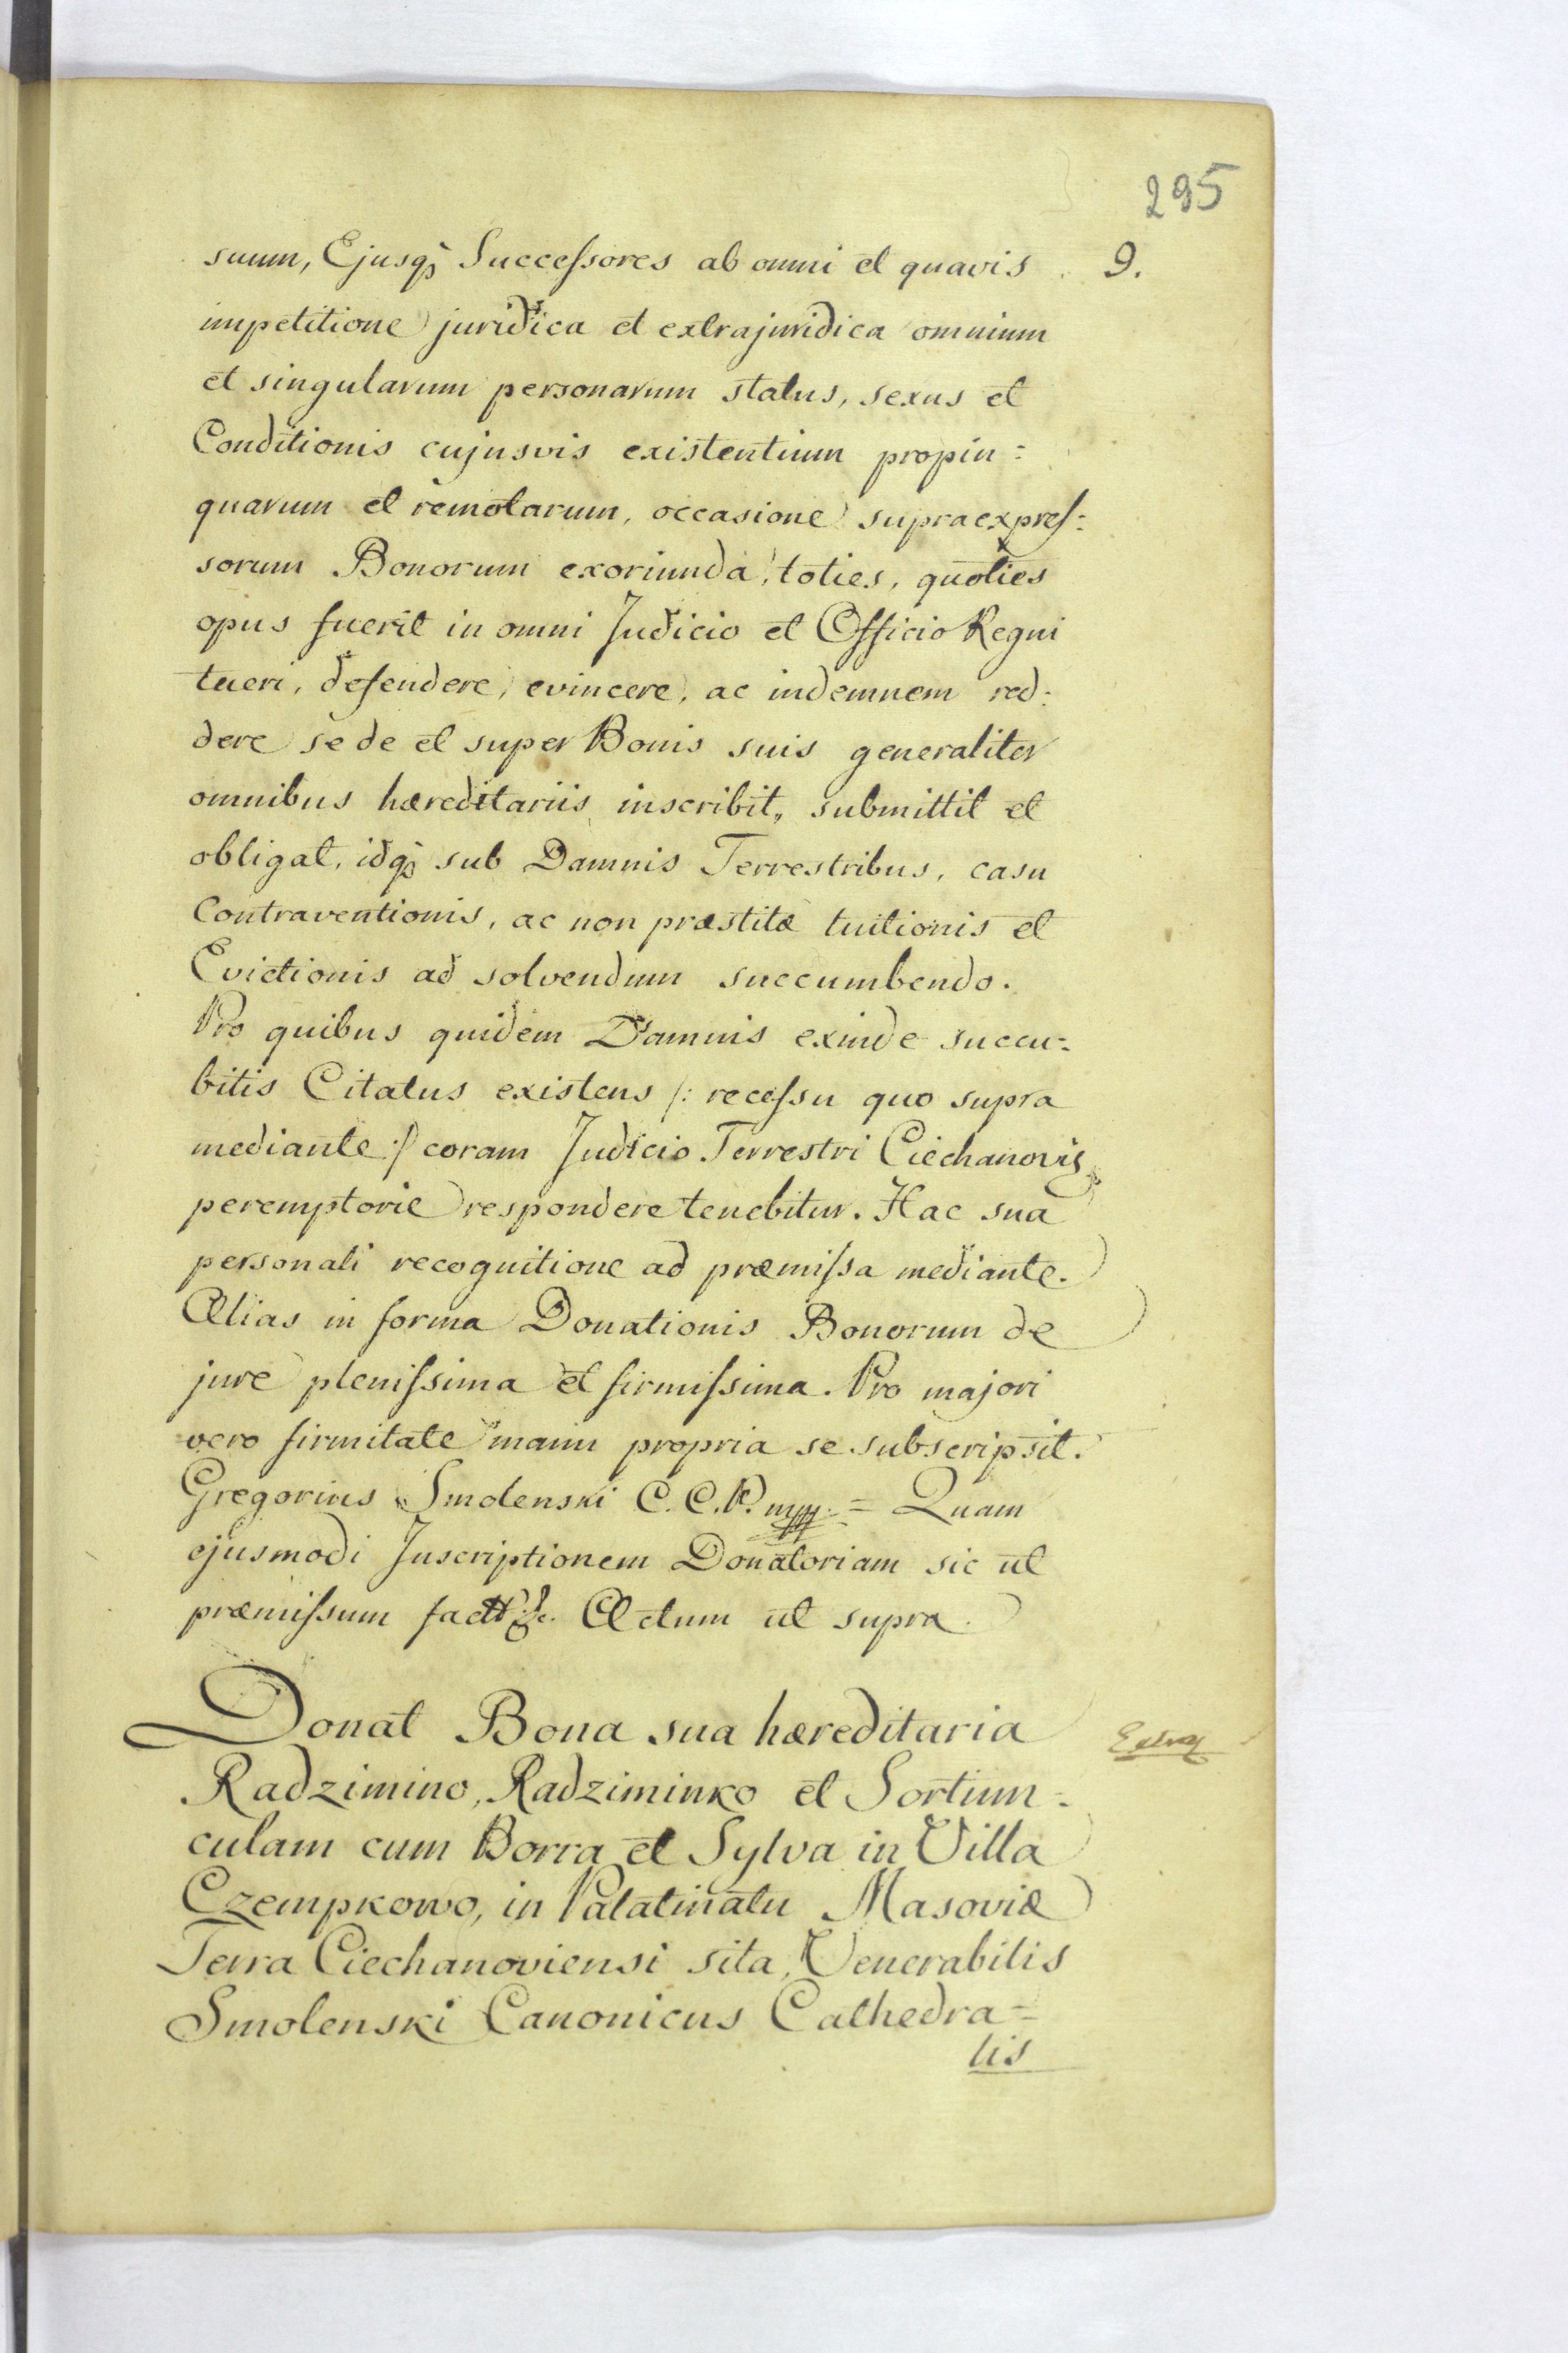 295
suum, Ejusq; Successores ab omni et quavis 9.
impetitione juridica et extrajuridica omnium
et singularum personarum status, sexus et
Conditionis cujusvis existentium propin:
quarum et remotarum, occasione supraexpres:
sorum Bonorum exoriunda, toties, quoties
opus fuerit in omni Judicio et Officio Regni
tueri, defendere, evincere, ac indemnem red:
dere se de et super Bonis suis generaliter
omnibus hæreditariis inscribit, submittit et
obligat, idq; sub Damnis Terrestribus, casu
Contraventionis, ac non præstitæ tuitionis et
Evictionis ad solvendum succumbendo.
Pro quibus quidem Damnis exinde succu:
bitis Citatus existens /: recessu quo supra
mediante :/ coram Judicio Terrestri Ciechanovis,
peremptorie respondere tenebitur. Hac sua
personali recognitione ad præmissa mediante.
Alias in forma Donationis Bonorum de
jure plenissima et firmissima. Pro majori
vero firmitate manu propria se subscripsit.
Gregorius Smolenski C. C. P. mpp. = Quam
ejusmodi Inscriptionem Donatoriam sic ut
præmissum factt &c. Actum ut supra.
Donat Bona sua hæreditaria
Radzimino, Radziminko et Sortiun=
culam cum Borra et Sylva in Villa
Czempkowo, in Palatinatu Masoviæ
Terra Ciechanoviensi sita, Venerabilis
Smolenski Canonicus Cathedra=
lis